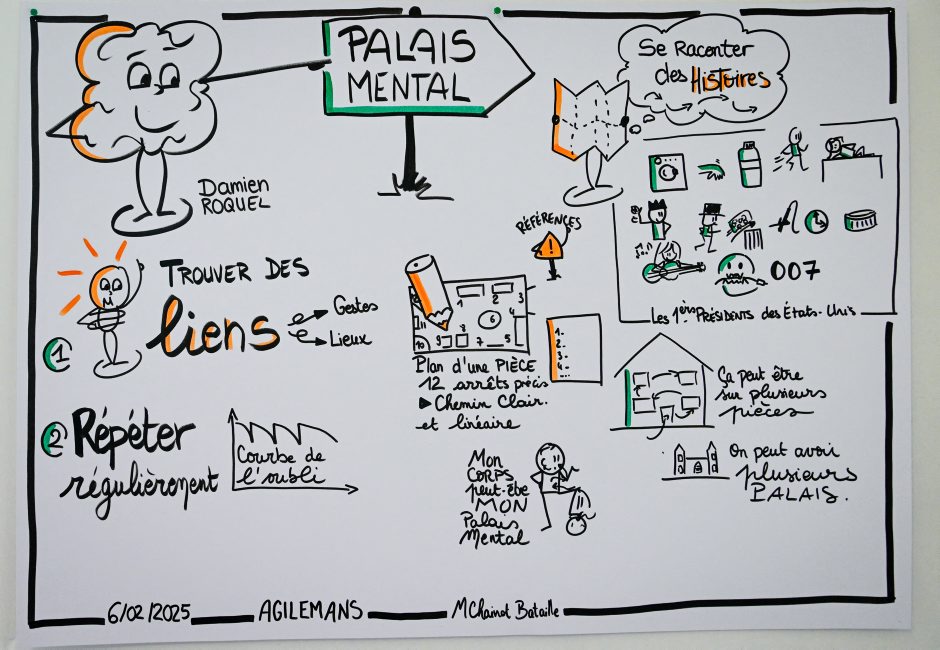 PALAIS
MENTAL
Damien
ROQUEL
Se Raconter
des HISToires
RÉFÉRENCES
!
007
Les 1ers PRÉSIDENTS des États-Unis
1
TROUVER DES
liens
Gestes
Lieux
1
2
3
4
5
6
7
8
9
10
1-
2-
3-
4-
Plan d'une PIÈCE
12 arrêts précis
Chemin Clair.
et linéaire
Ça peut être
sur plusieurs
pièces
On peut avoir
plusieurs
PALAIS.
2
Répéter
régulièrement
Courbe de
l'oubli
Mon
CORPS
peut-être
MON
Palais
Mental
6/02/2025
AGILEMANS
MChainot Bataille